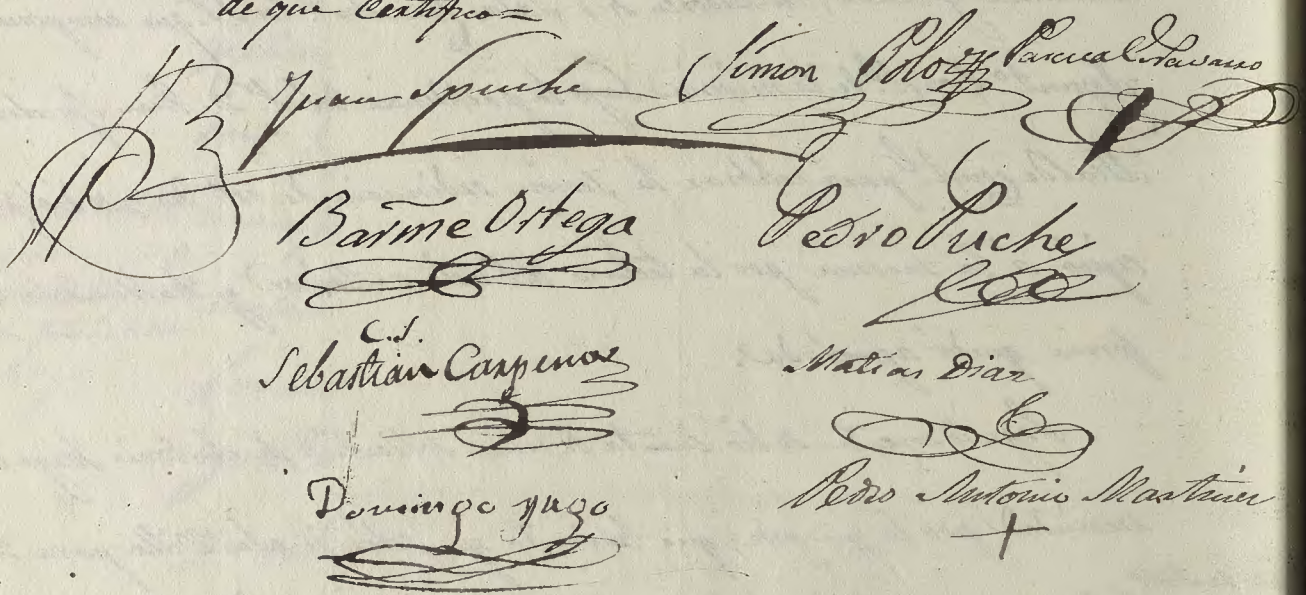 de que Certifico=
Juan Spuche Simon Polo Pascual Navarro
Barme Ortega Pedro Puche
C.S.
Sebastian Carpena Matias Diaz
Domingo Yago Pedro Antonio Martinez